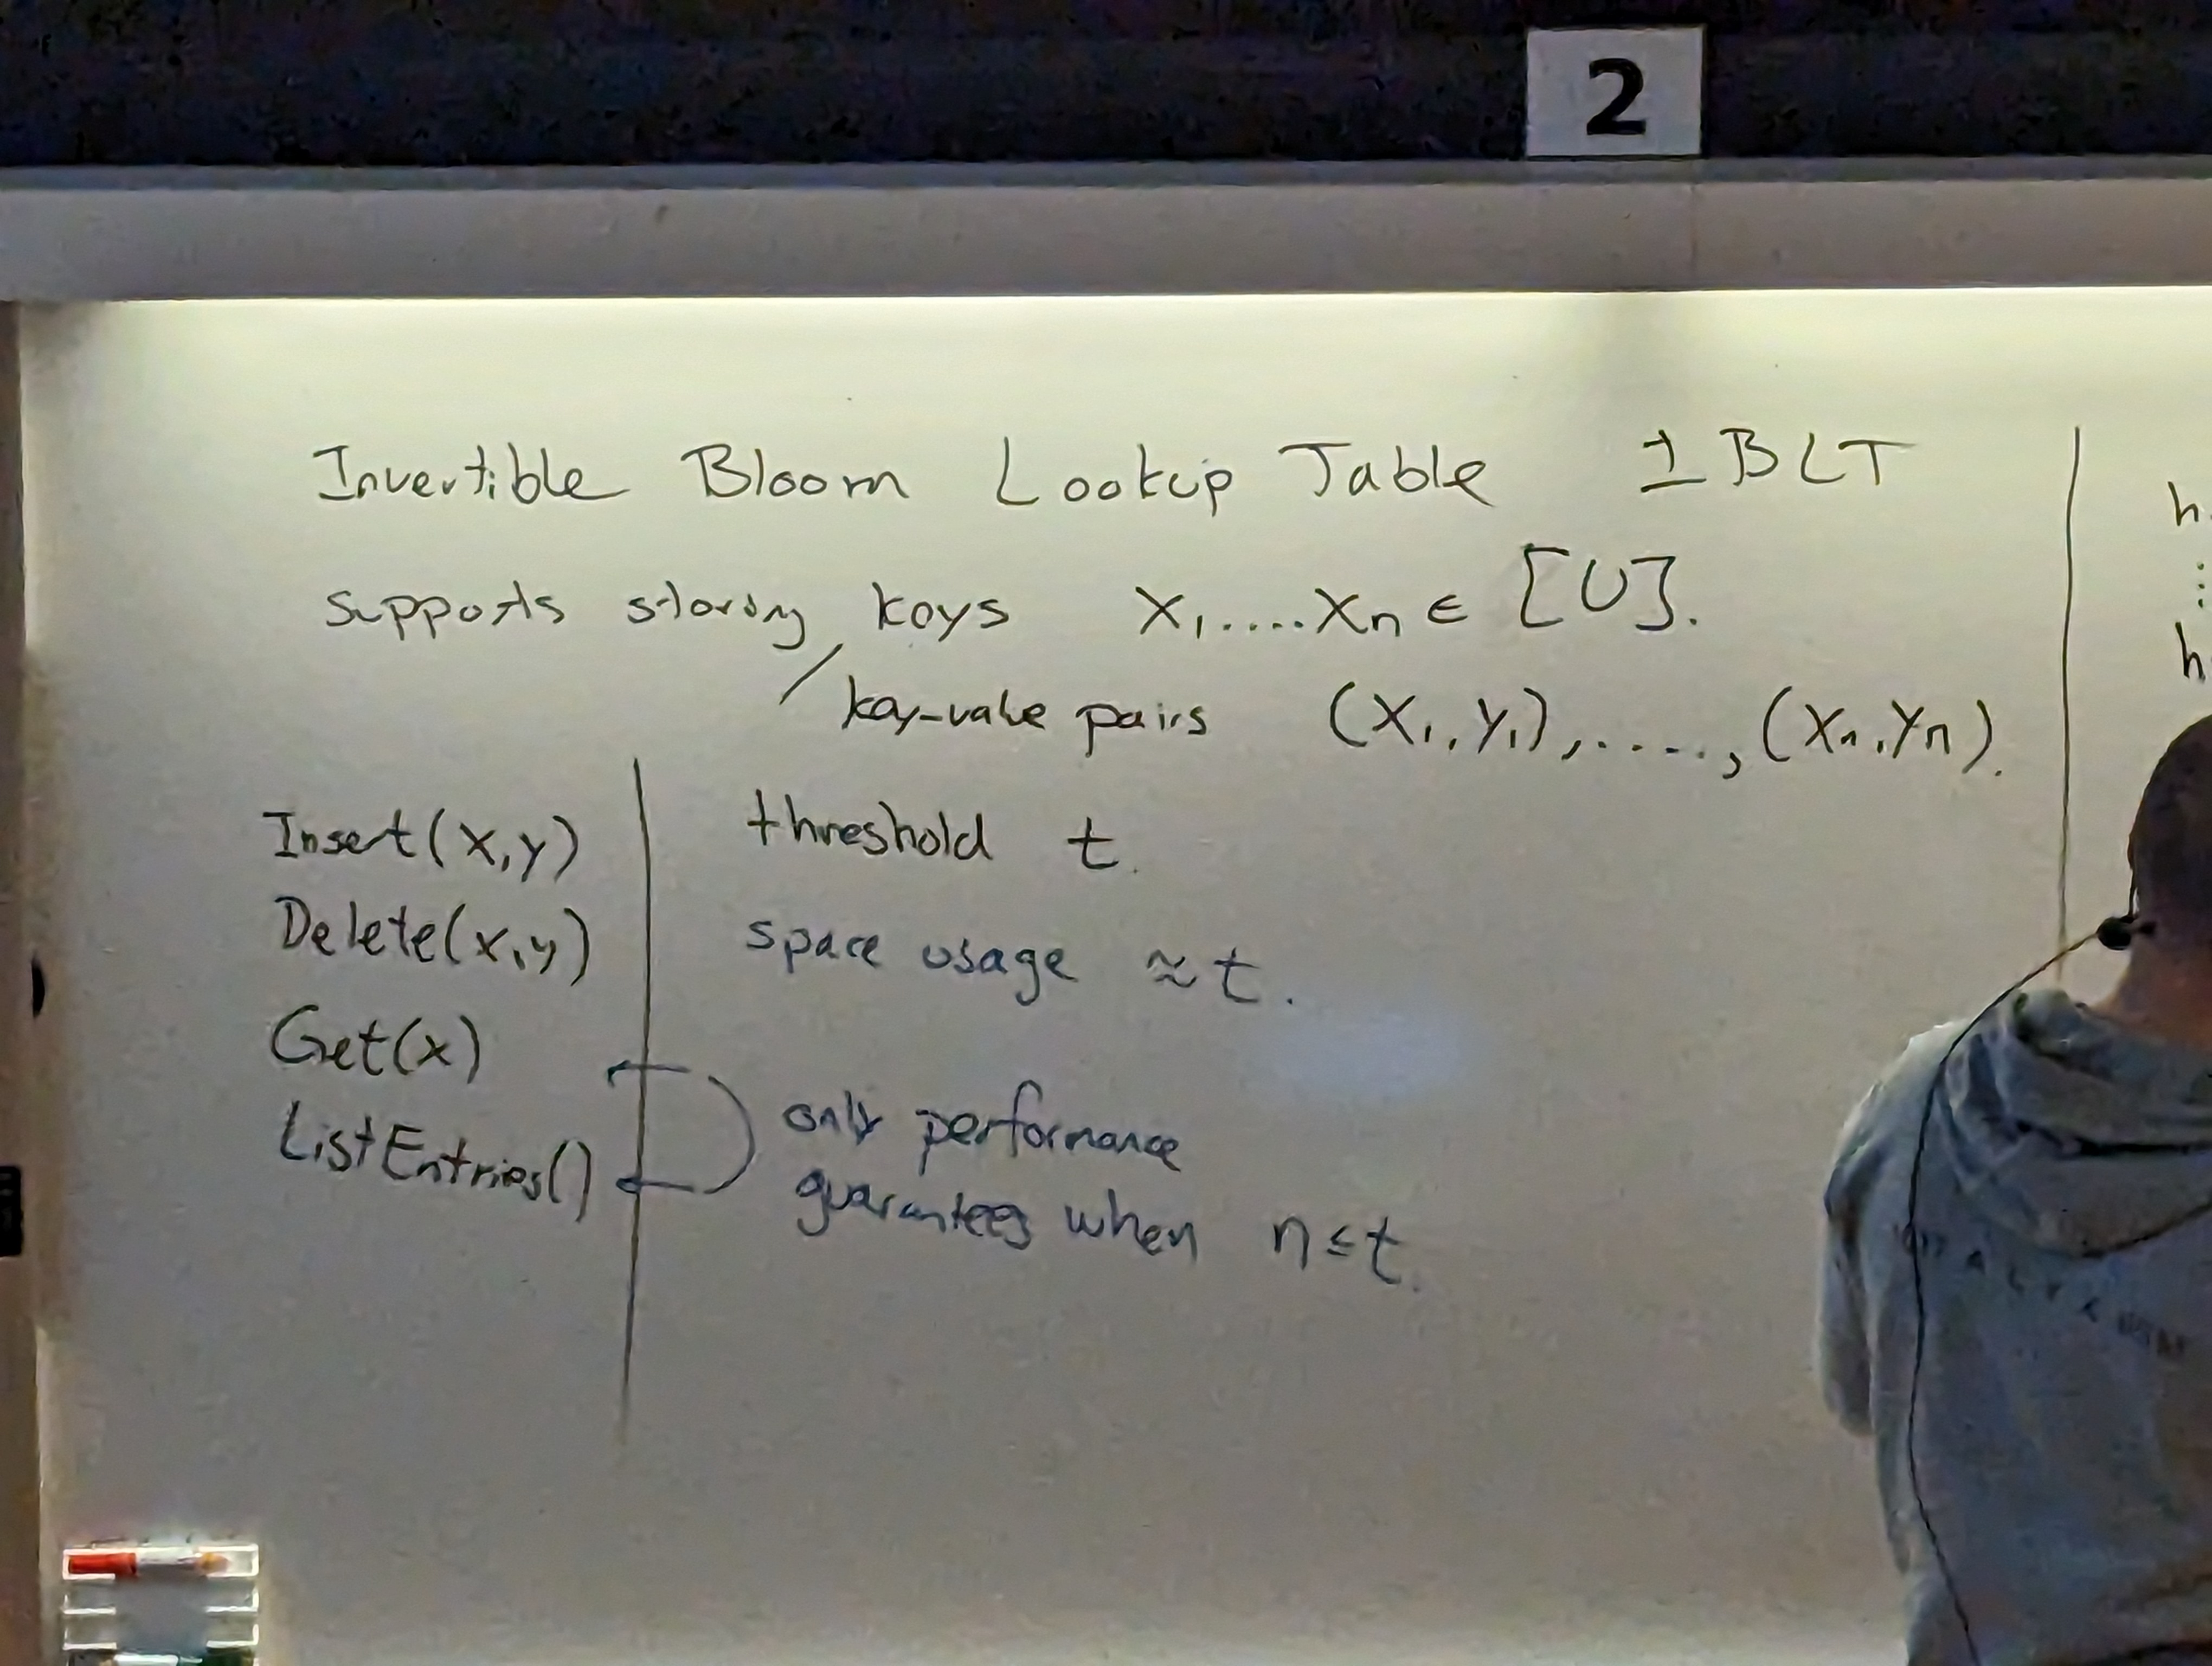 2
Invertible Bloom Lookup Table IBLT
supports storing keys x₁.....xₙ ∈ [U].
/ key-value pairs (x₁,y₁),.....,(xₙ,yₙ).
Insert(x,y)
Delete(x,y)
Get(x)
ListEntries()
threshold t.
space usage ≈ t.
only performance
guarantees when n ≤ t.
h
⋮
h